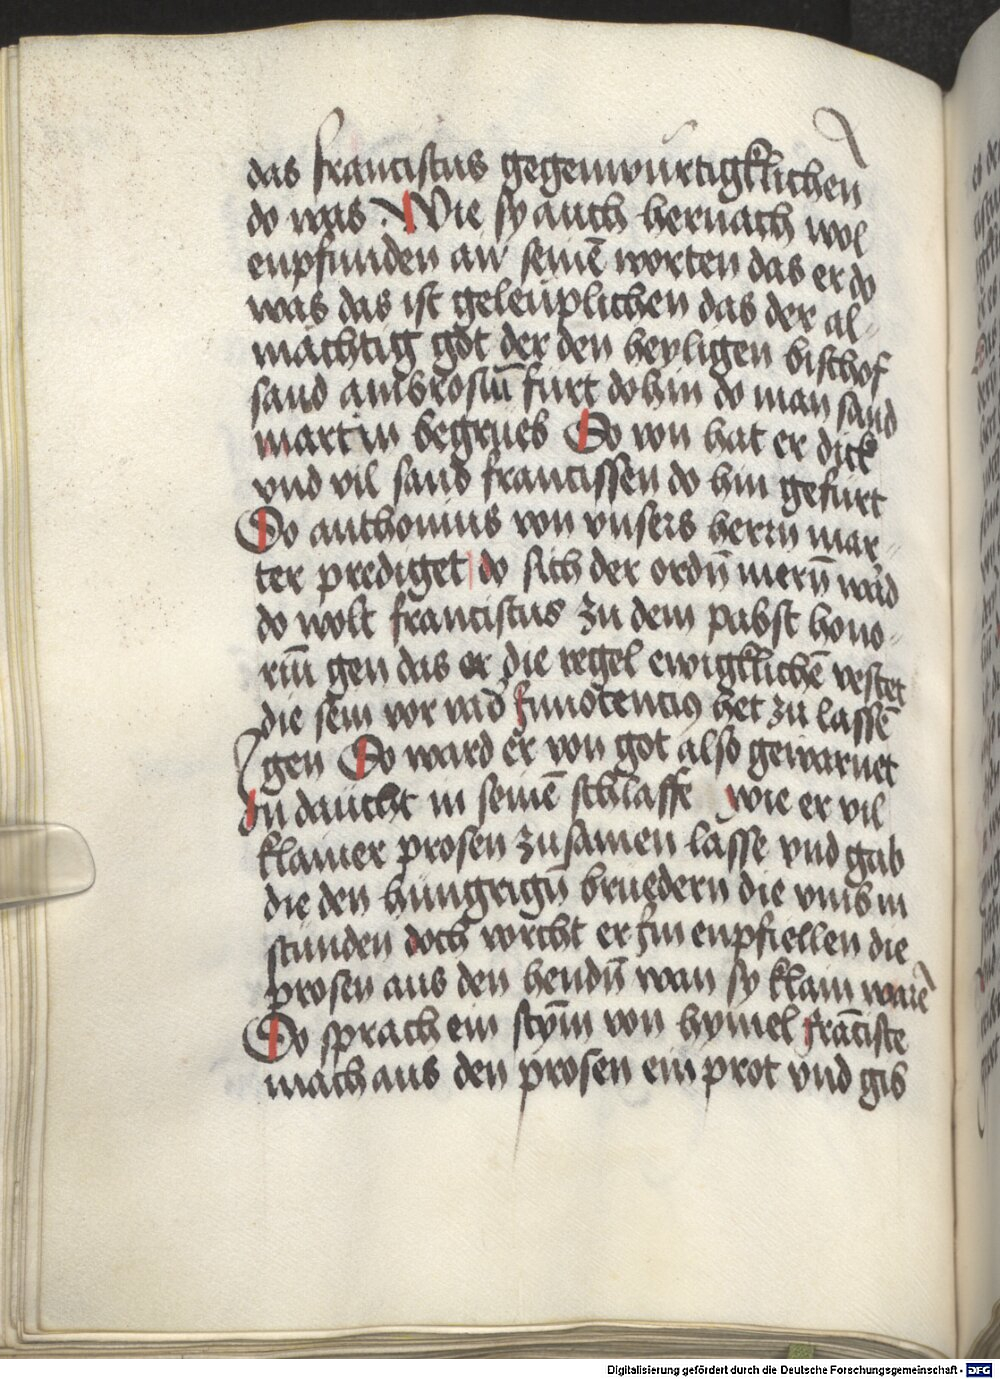 das franciscus gegenwurtigklichen
do was Wie sy auch hernach wol
enpfunden an seinē worten das er do
was das ist geleuplichen das der al-
machtig got der den heyligen bischof
sand ambrosiū furt dohin do man sand
martin begrueb So von hat er dick
vnd vil sand francissen do hin gefurt
Do anthonius von vnsers herrn mar-
ter prediget do sich der ordn̄ mern̄ ward
do wolt franciscus zu dem pabst hono-
riū gen das er die regel ewigklichē vestet
die sein vor vad Innocencius het zu lassē
gen So ward er von got also gewarnet
In daucht in seinē schlaffe wie er vil
klainer prosen zusamen lasse vnd gab
die den hungrign̄ bruedern die vmb in
stunden doch vorcht er Im enpfiellen die
prosen aus den hendn̄ wan sy klain warē
Do sprach ein stym̄ von hymel frāciste
mach aus den prosen ein prot vnd gib
Digitalisierung gefördert durch die Deutsche Forschungsgemeinschaft - DFG